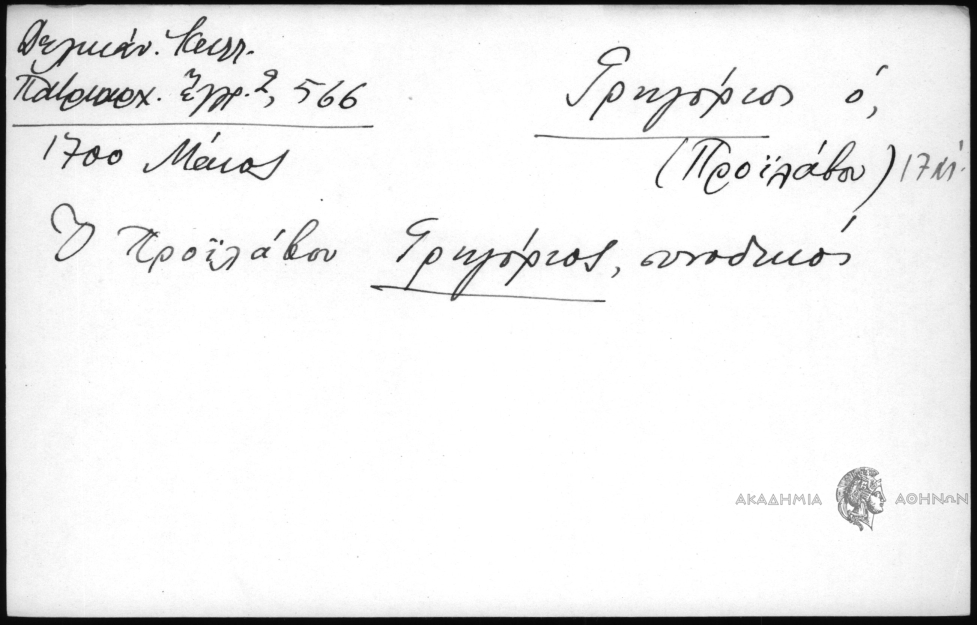 Δελικάν. Κων.
Πατριαρχ. Ἔγγρ. 2, 566
1700 Μάιος
Γρηγόριος ὁ,
(Προϊλάβου) 17 αἰ.
Ὁ Προϊλάβου Γρηγόριος, συνοδικός
ΑΚΑΔΗΜΙΑ ΑΘΗΝΩΝ